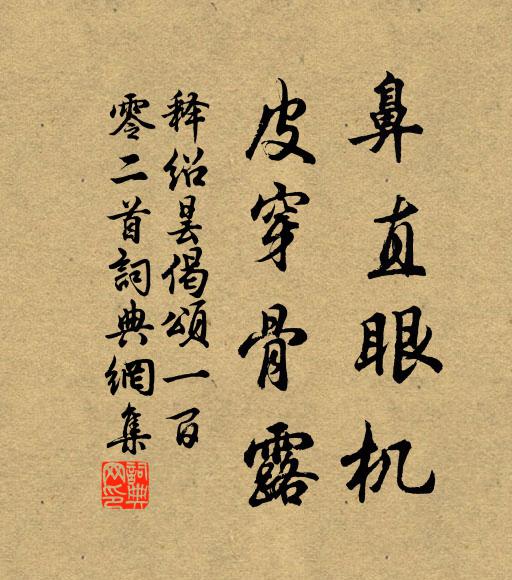 鼻直眼机
皮穿骨露
释绍昙偈颂一百
零二首詞典網集
詞典網印